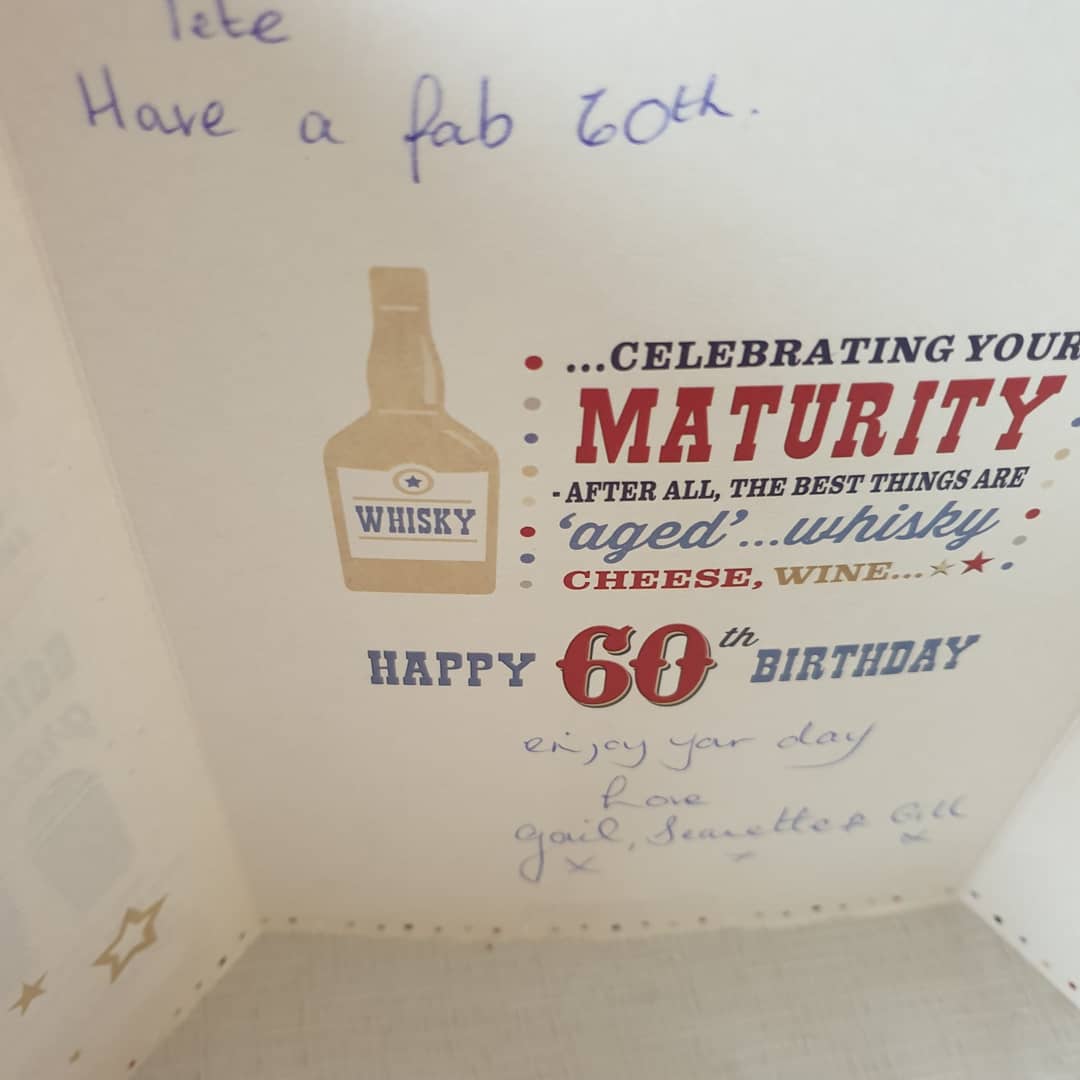 Pete
Have a fab 60th.
...CELEBRATING YOUR
MATURITY
- AFTER ALL, THE BEST THINGS ARE
WHISKY
'aged'...whisky
CHEESE, WINE...
HAPPY 60th BIRTHDAY
enjoy your day
Love
Gail, Jeanette & Gill
x x x